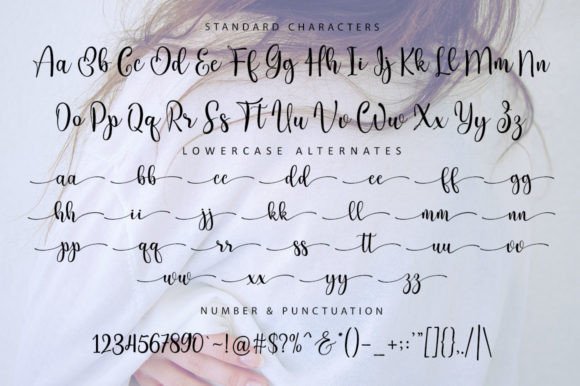 STANDARD CHARACTERS
Aa Bb Cc Dd Ee Ff Gg Hh Ii Jj Kk Ll Mm Nn
Oo Pp Qq Rr Ss Tt Uu Vv Ww Xx Yy Zz
LOWERCASE ALTERNATES
aa bb cc dd ee ff gg
hh ii jj kk ll mm nn
pp qq rr ss tt uu vv
ww xx yy zz
NUMBER & PUNCTUATION
1234567890`~!@#$?%^&*()-_+;:'"[]{},./|\